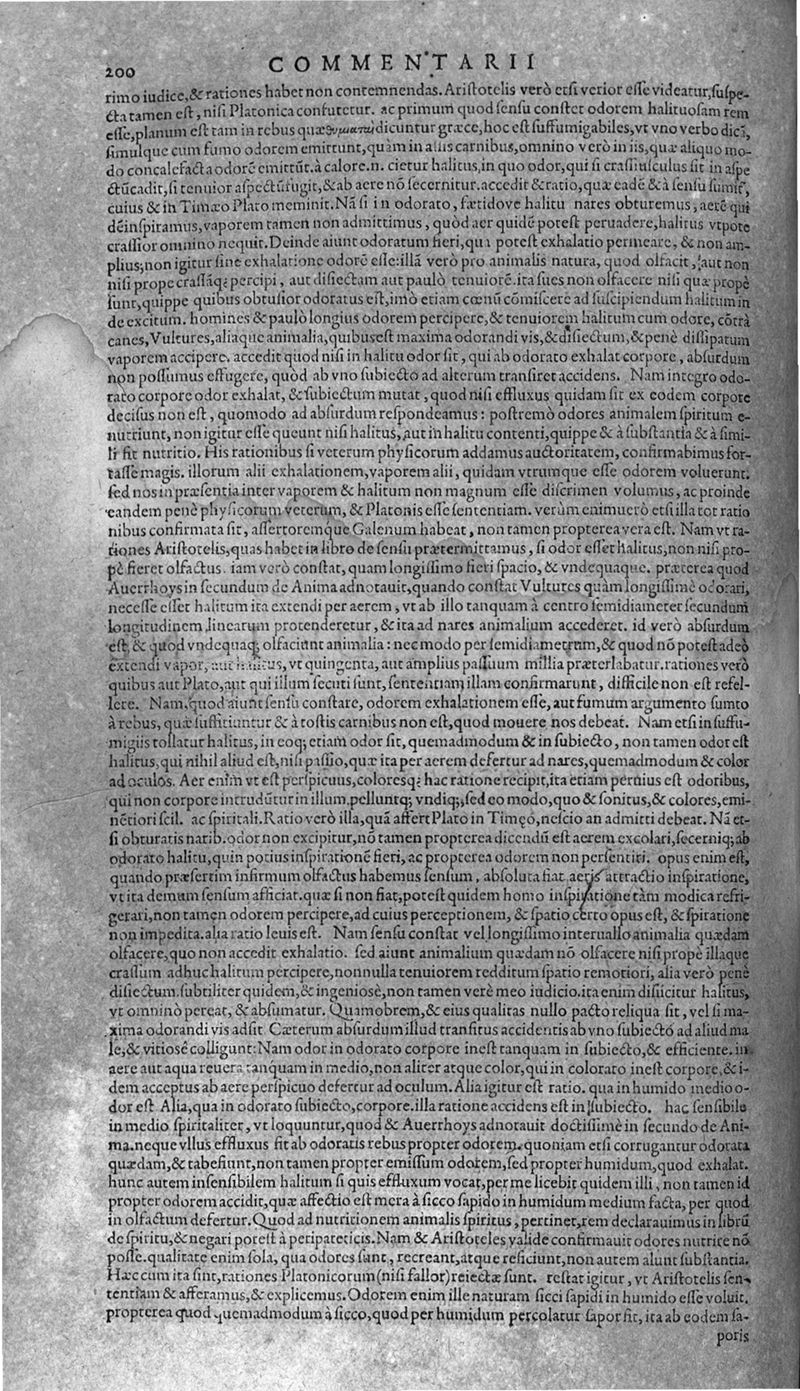 200
COMMENTARII
rimo iudice,& rationes habet non contemnendas. Aristotelis verò etsi verior esse videatur, suspe-
cta tamen est, nisi Platonica confutetur. ac primum quod sensu constet odorem halituosam rem
esse, planum est tam in rebus quæ dicuntur græce, hoc est suffumigabiles, vt vno verbo dicā,
simulque cum fumo odorem emittunt, quàm in assis carnibus, omnino verò in iis, quæ aliquo mo-
do concalefacta odorē emittūt. à calore.n. cietur halitus, in quo odor, qui si crassiusculus sit in aspe
ctū cadit, si tenuior aspectū fugit,& ab aere nō secernitur. accedit & ratio, quæ eadē & à sensu sumit,
cuius & in Timæo Plato meminit. Nā si in odorato, fætidove halitu nares obturemus, aerē qui
dē inspiramus, vaporem tamen non admittimus, quòd aer quidē potest peruadere, halitus vtpote
crassior omnino nequit. Deinde aiunt odoratum fieri, qua potest exhalatio permeare, & non am-
plius; non igitur sine exhalatione odorē esse: illā verò pro animalis natura, quod olfacit, aut non
nisi prope crassāq; percipi, aut disiectam aut paulò tenuiorē. ita sues non olfacere nisi quæ propè
sunt, quippe quibus obtusior odoratus est, imò etiam cœnū cōmiscere ad suscipiendum halitum in
de excitum. homines & paulò longius odorem percipere,& tenuiorem halitum cum odore, cōtrà
canes, Vultures, aliaque animalia, quibus est maxima odorandi vis,& disiectum,& penè dissipatum
vaporem accipere. accedit quod nisi in halitu odor sit, qui ab odorato exhalat corpore, absurdum
non possumus effugere, quòd ab vno subiecto ad alterum transiret accidens. Nam integro odo-
rato corpore odor exhalat, & subiectum mutat, quod nisi effluxus quidam sit ex eodem corpore
decisus non est, quomodo ad absurdum respondeamus: postremò odores animalem spiritum e-
nutriunt, non igitur esse queunt nisi halitus, aut in halitu contenti, quippe & à substantia & à simi-
li fit nutritio. His rationibus si veterum physicorum addamus auctoritatem, confirmabimus for-
tasse magis. illorum alii exhalationem, vaporem alii, quidam vtrumque esse odorem voluerunt.
sed nos in præsentia inter vaporem & halitum non magnum esse discrimen volumus, ac proinde
eandem penè physicorum veterum, & Platonis esse sententiam. verùm enimuerò etsi illa tot ratio
nibus confirmata sit, assertoremque Galenum habeat, non tamen propterea vera est. Nam vt ra-
tiones Aristotelis, quas habet in libro de sensu prætermittamus, si odor esset halitus, non nisi pro-
pè fieret olfactus. iam verò constat, quam longissimo fieri spacio, & vndequaque. præterea quod
Auerrhoys in secundum de Anima adnotauit, quando constat Vultures quàm longissimè odorari,
necesse esset halitum ita extendi per aerem, vt ab illo tanquam à centro semidiameter secundum
longitudinem, linearum protenderetur, & ita ad nares animalium accederet. id verò absurdum
est, & quod vndequaq; olfaciunt animalia: nec modo per semidiametrum, & quod nō potest adeò
extendi vapor, aut halitus, vt quingenta, aut amplius passuum millia præterlabatur. rationes verò
quibus aut Plato, aut qui illum secuti sunt, sententiam illam confirmarunt, difficile non est refel-
lere. Nam, quod aiunt sensu constare, odorem exhalationem esse, aut fumum argumento sumto
à rebus, quæ suffitiuntur & à tostis carnibus non est, quod mouere nos debeat. Nam etsi in suffu-
migiis tollatur halitus, in eoq; etiam odor sit, quemadmodum & in subiecto, non tamen odor est
halitus, qui nihil aliud est, nisi passio, quæ ita per aerem defertur ad nares, quemadmodum & color
ad oculos. Aer enim vt est perspicuus, coloresq; hac ratione recipit, ita etiam peruius est odoribus,
qui non corpore intrudūtur in illum, pelluntq; vndiq;, sed eo modo, quo & sonitus, & colores, emi-
nētiori scil. ac spiritali. Ratio verò illa, quā affert Plato in Timęo, nescio an admitti debeat. Nā et-
si obturatis narib. odor non excipitur, nō tamen propterea dicendū est aerem excolari, secerniq; ab
odorato halitu, quin potius inspirationē fieri, ac propterea odorem non persentiri. opus enim est,
quando præsertim infirmum olfactus habemus sensum, absoluta fiat aeris attractio inspiratione,
vt ita demum sensum afficiat. quæ si non fiat, potest quidem homo inspiratione tàm modica refri-
gerari, non tamen odorem percipere, ad cuius perceptionem, & spatio certo opus est, & spiratione
non impedita. alia ratio leuis est. Nam sensu constat vel longissimo interuallo animalia quædam
olfacere, quo non accedit exhalatio. sed aiunt animalium quædam nō olfacere nisi propè illaque
crassum adhuc halitum percipere, nonnulla tenuiorem redditum spatio remotiori, alia verò penè
disiectum. subtiliter quidem, & ingeniosè, non tamen verè meo iudicio. ita enim disiicitur halitus,
vt omninò pereat, & absumatur. Quamobrem, & eius qualitas nullo pacto reliqua sit, vel si ma-
xima odorandi vis adsit. Cæterum absurdum illud transitus accidentis ab vno subiectó ad aliud ma
le, & vitiosè colligunt: Nam odor in odorato corpore inest tanquam in subiecto, & efficiente. in
aere aut aqua reuera tanquam in medio, non aliter atque color, qui in colorato inest corpore, & i-
dem acceptus ab aere perspicuo defertur ad oculum. Alia igitur est ratio. qua in humido medio o-
dor est Alia, qua in odorato subiecto, corpore. illa ratione accidens est in subiecto. hac sensibile
in medio spiritaliter, vt loquuntur, quod & Auerrhoys adnotauit doctissimè in secundo de Ani-
ma. neque vllus effluxus fit ab odoratis rebus propter odorem. quoniam etsi corrugantur odorata
quædam, & tabefiunt, non tamen propter emissum odorem, sed propter humidum, quod exhalat.
hunc autem insensibilem halitum si quis effluxum vocat, per me licebit quidem illi, non tamen id
propter odorem accidit, quæ affectio est mera à sicco sapido in humidum medium facta, per quod
in olfactum defertur. Quod ad nutritionem animalis spiritus, pertinet, rem declarauimus in librū
de spiritu, & negari potest à peripateticis. Nam & Aristoteles valide confirmauit odores nutrire nō
posse. qualitate enim sola, qua odores sunt, recreant, atque reficiunt, non autem alunt substantia.
Hæc cum ita sint, rationes Platonicorum (nisi fallor) reiectæ sunt. restat igitur, vt Aristotelis sen-
tentiam & afferamus, & explicemus. Odorem enim ille naturam sicci sapidi in humido esse voluit.
propterea quod quemadmodum à sicco, quod per humidum percolatur sapor fit, ita ab eodem sa-
poris